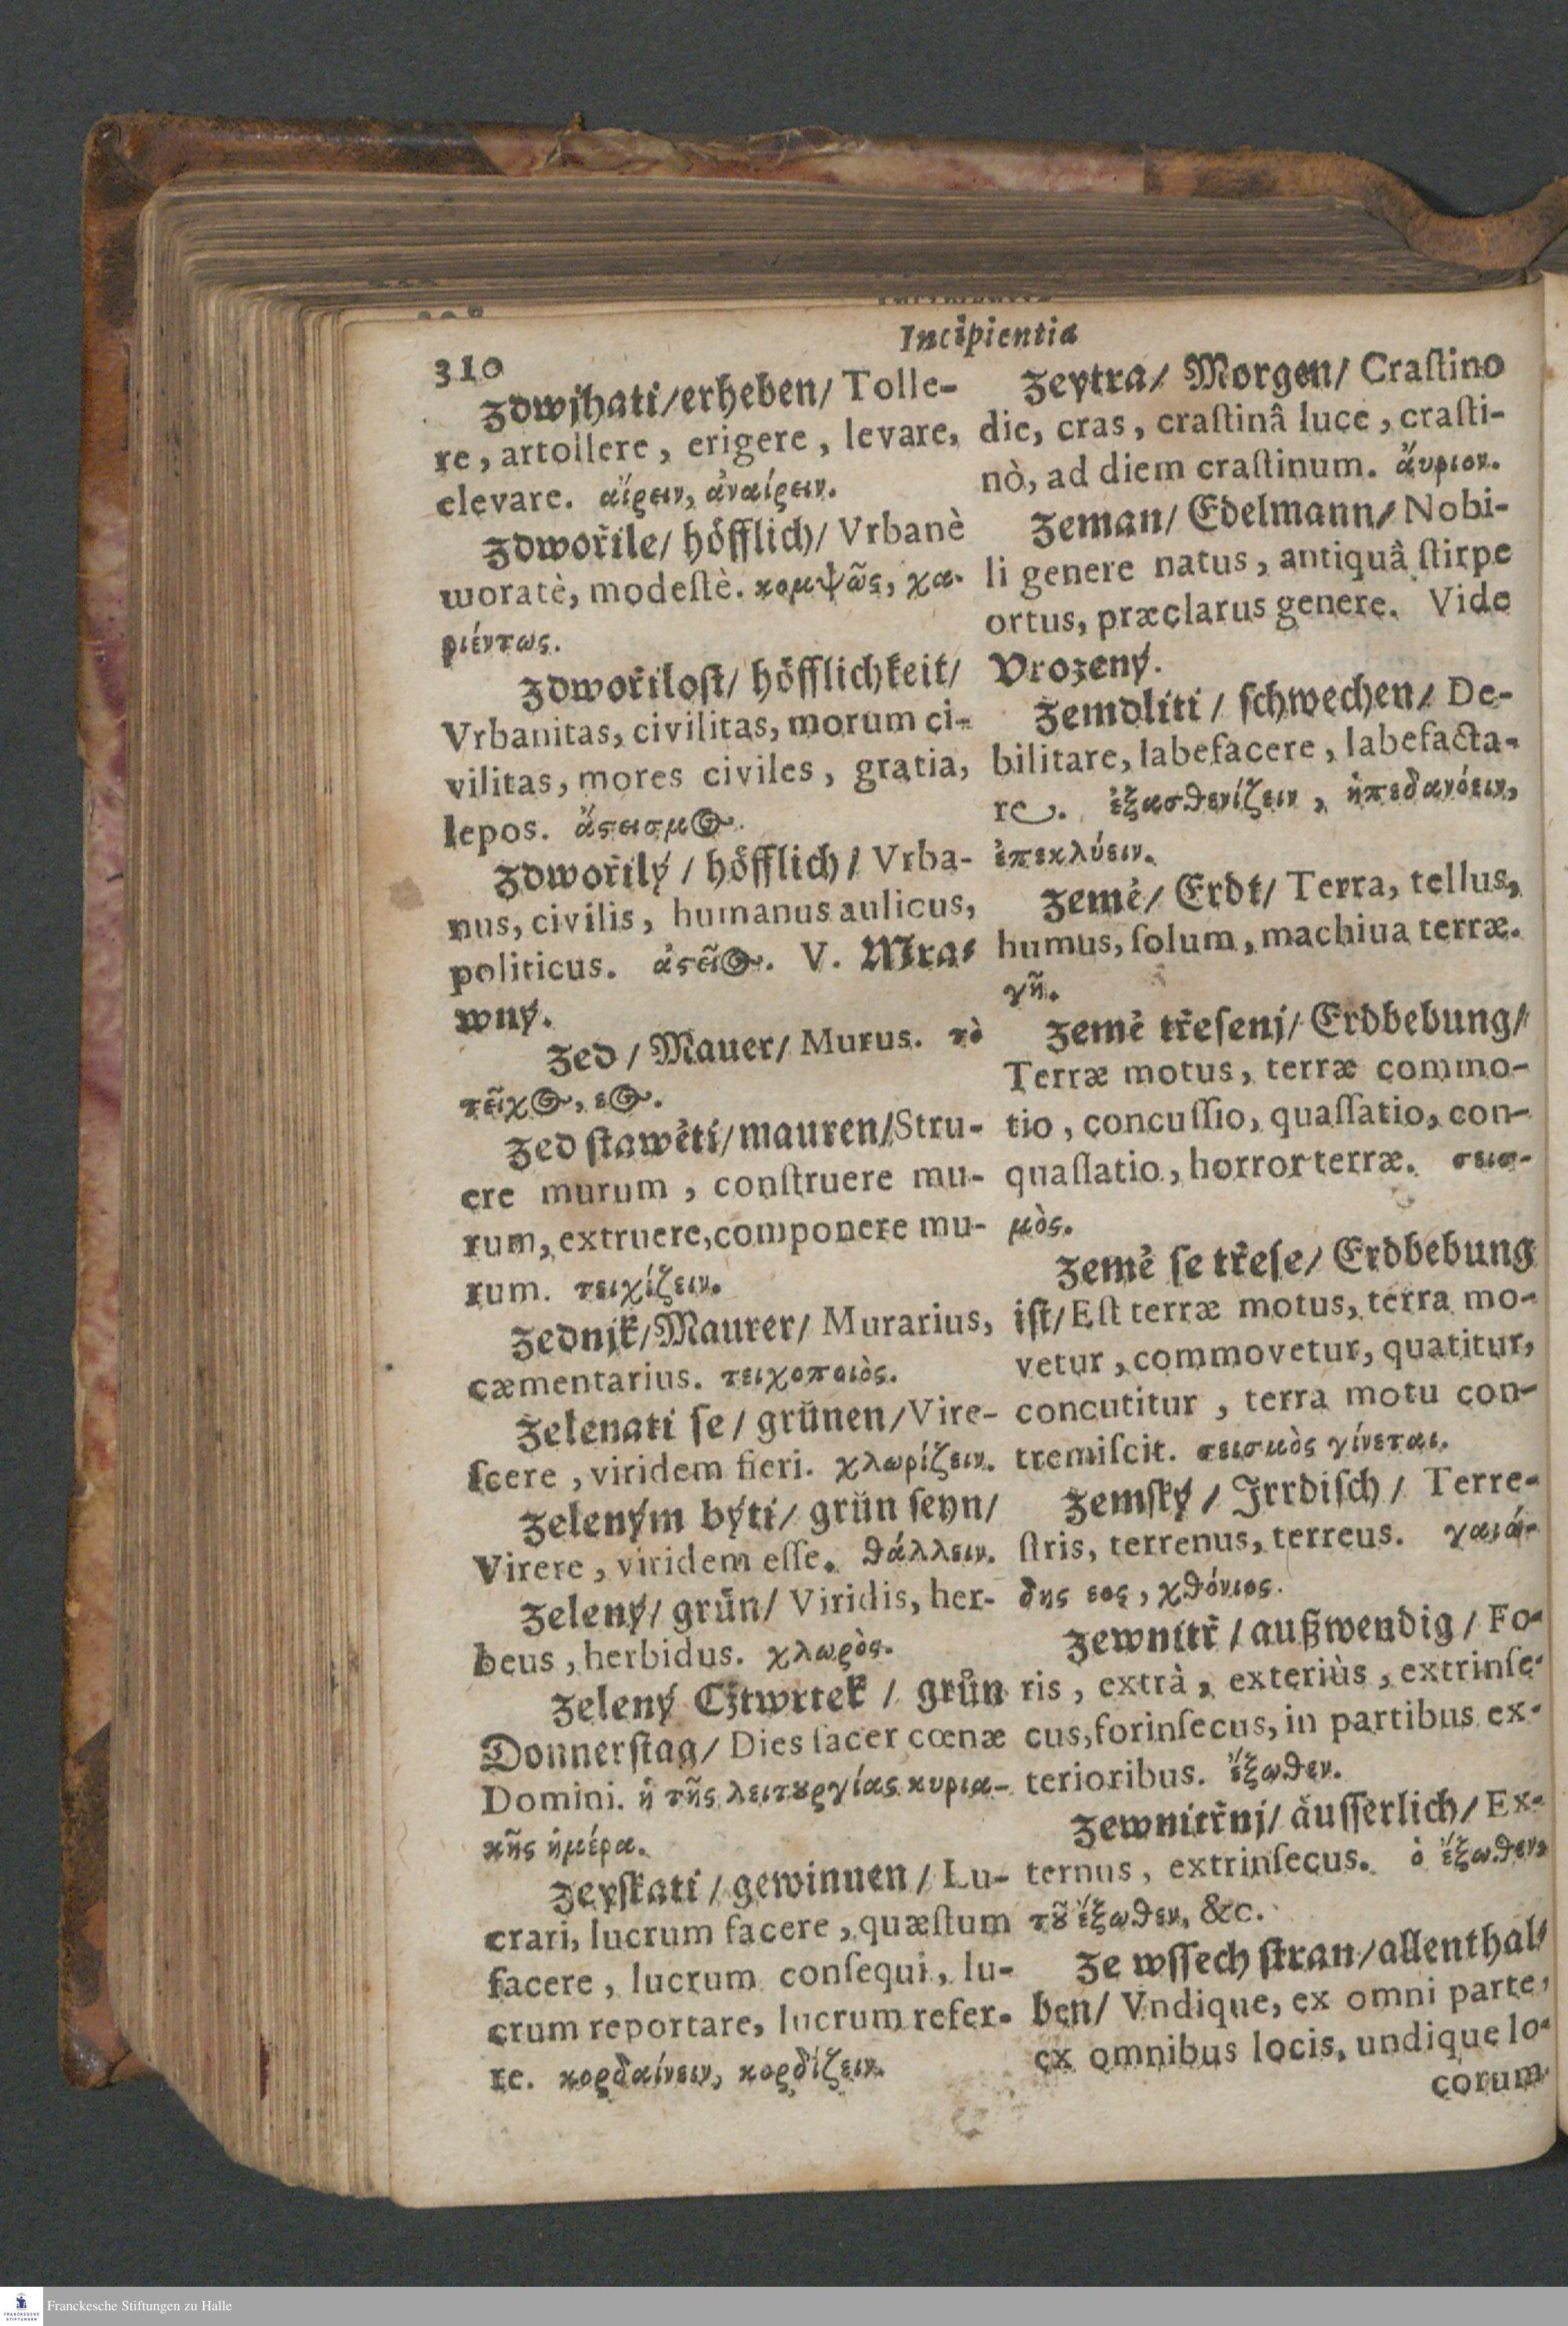 310
Incipientia
Zdwjhati/erheben/ Tolle-
re, artollere, erigere, levare,
elevare. αἴρειν, ἀναίρειν.
Zdwořile/ höfflich/ Vrbanè
woratè, modeſtè. κομψῶς, χα-
ριέντως.
Zdwořiloſt/ höfflichkeit/
Vrbanitas, civilitas, morum ci-
vilitas, mores civiles, gratia,
lepos. ἄϛεισμος.
Zdwořilý / höfflich/ Vrba-
nus, civilis, humanus aulicus,
politicus. ἀϛεῖος. V. Mra-
wný.
Zed / Mauer/ Murus. τὸ
τεῖχος, εος.
Zed ſtawěti/mauren/Stru-
ere murum, conſtruere mu-
rum, extruere,componere mu-
rum. τειχίζειν.
Zednjk/Maurer/ Murarius,
cæmentarius. τειχοποιὸς.
Zelenati ſe/ grünen/Vire-
ſcere, viridem fieri. χλωρίζειν.
Zeleným býti/ grün ſeyn/
Virere, viridem eſſe. θάλλειν.
Zelený/ grün/ Viridis, her-
beus, herbidus. χλωρὸς.
Zelený Cžtwrtek / grün
Donnerſtag/ Dies ſacer cœnæ
Domini. ἡ τῆς λειτȣργίας κυρια-
κῆς ἡμέρα.
Zeyſkati / gewinnen / Lu-
crari, lucrum facere, quæſtum
facere, lucrum conſequi, lu-
crum reportare, lucrum refer-
re. κορδαίνειν, κορδίζειν.
Zeytra/ Morgen/ Craſtino
die, cras, craſtinâ luce, craſti-
nò, ad diem craſtinum. ἄυριον.
Zeman/ Edelmann/ Nobi-
li genere natus, antiquâ ſtirpe
ortus, præclarus genere. Vide
Vrozený.
Zemdliti / ſchwechen/ De-
bilitare, labefacere, labefacta-
re. ἐξασθενίζειν, ἠπεδανόειν,
ἐπεκλύειν.
Země/ Erdt/ Terra, tellus,
humus, ſolum, machiua terræ.
γῆ.
Země třeſenj/ Erdbebung/
Terræ motus, terræ commo-
tio, concuſſio, quaſſatio, con-
quaſſatio, horror terræ. σεισ-
μὸς.
Země ſe třeſe/ Erdbebung
iſt/ Eſt terræ motus, terra mo-
vetur, commovetur, quatitur,
concutitur, terra motu con-
tremiſcit. σεισμὸς γίνεται.
Zemſký / Jrrdiſch / Terre-
ſtris, terrenus, terreus. γαιώ-
δης εος, χθόνιος.
Zewnitř / außwendig / Fo-
ris, extrà, exteriùs, extrinſe-
cus,forinſecus, in partibus ex-
terioribus. ἔξωθεν.
Zewnitřnj/ äuſſerlich/ Ex-
ternus, extrinſecus. ὁ ἔξωθεν,
τȣ͂ ἔξωθεν, &c.
Ze wſſech ſtran/allenthal-
ben/ Vndique, ex omni parte,
ex omnibus locis, undique lo-
corum
Franckesche Stiftungen zu Halle